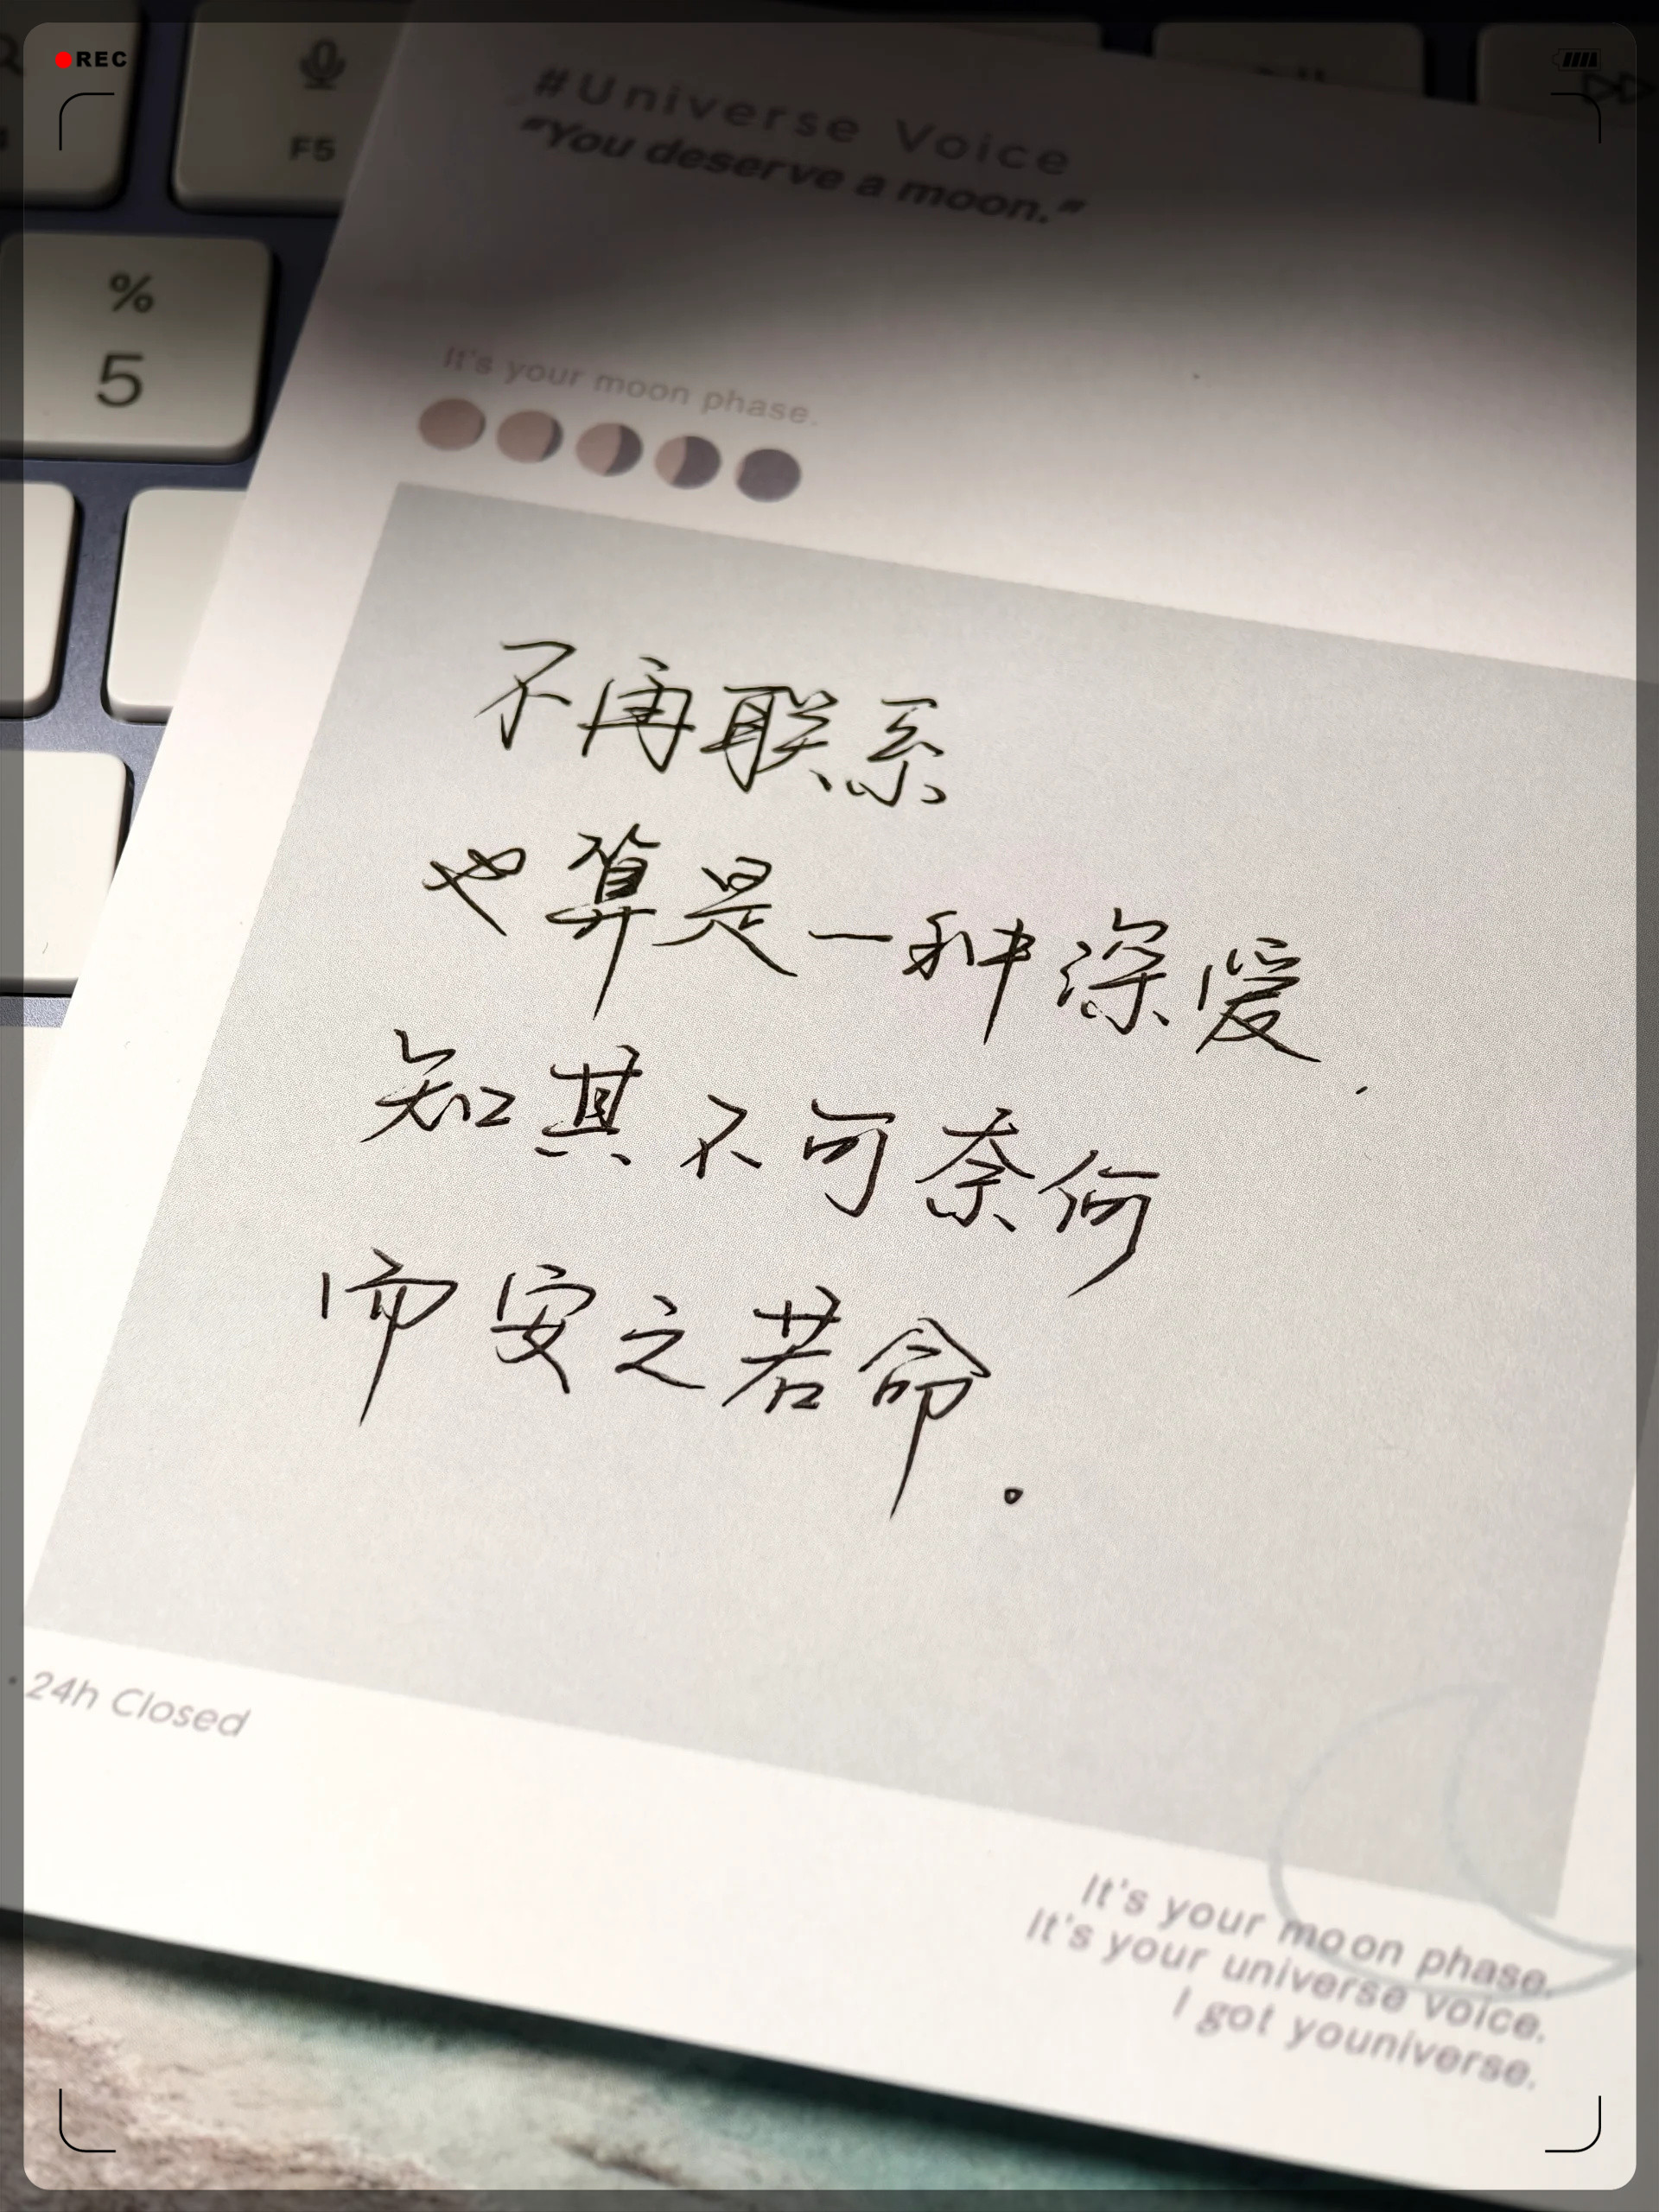 REC
F5
#Universe Voice
"You deserve a moon."
%
5
It's your moon phase.
不再联系
也算是一种深爱.
知其不可奈何
而安之若命。
· 24h Closed
It's your moon phase.
It's your universe voice.
I got youniverse.